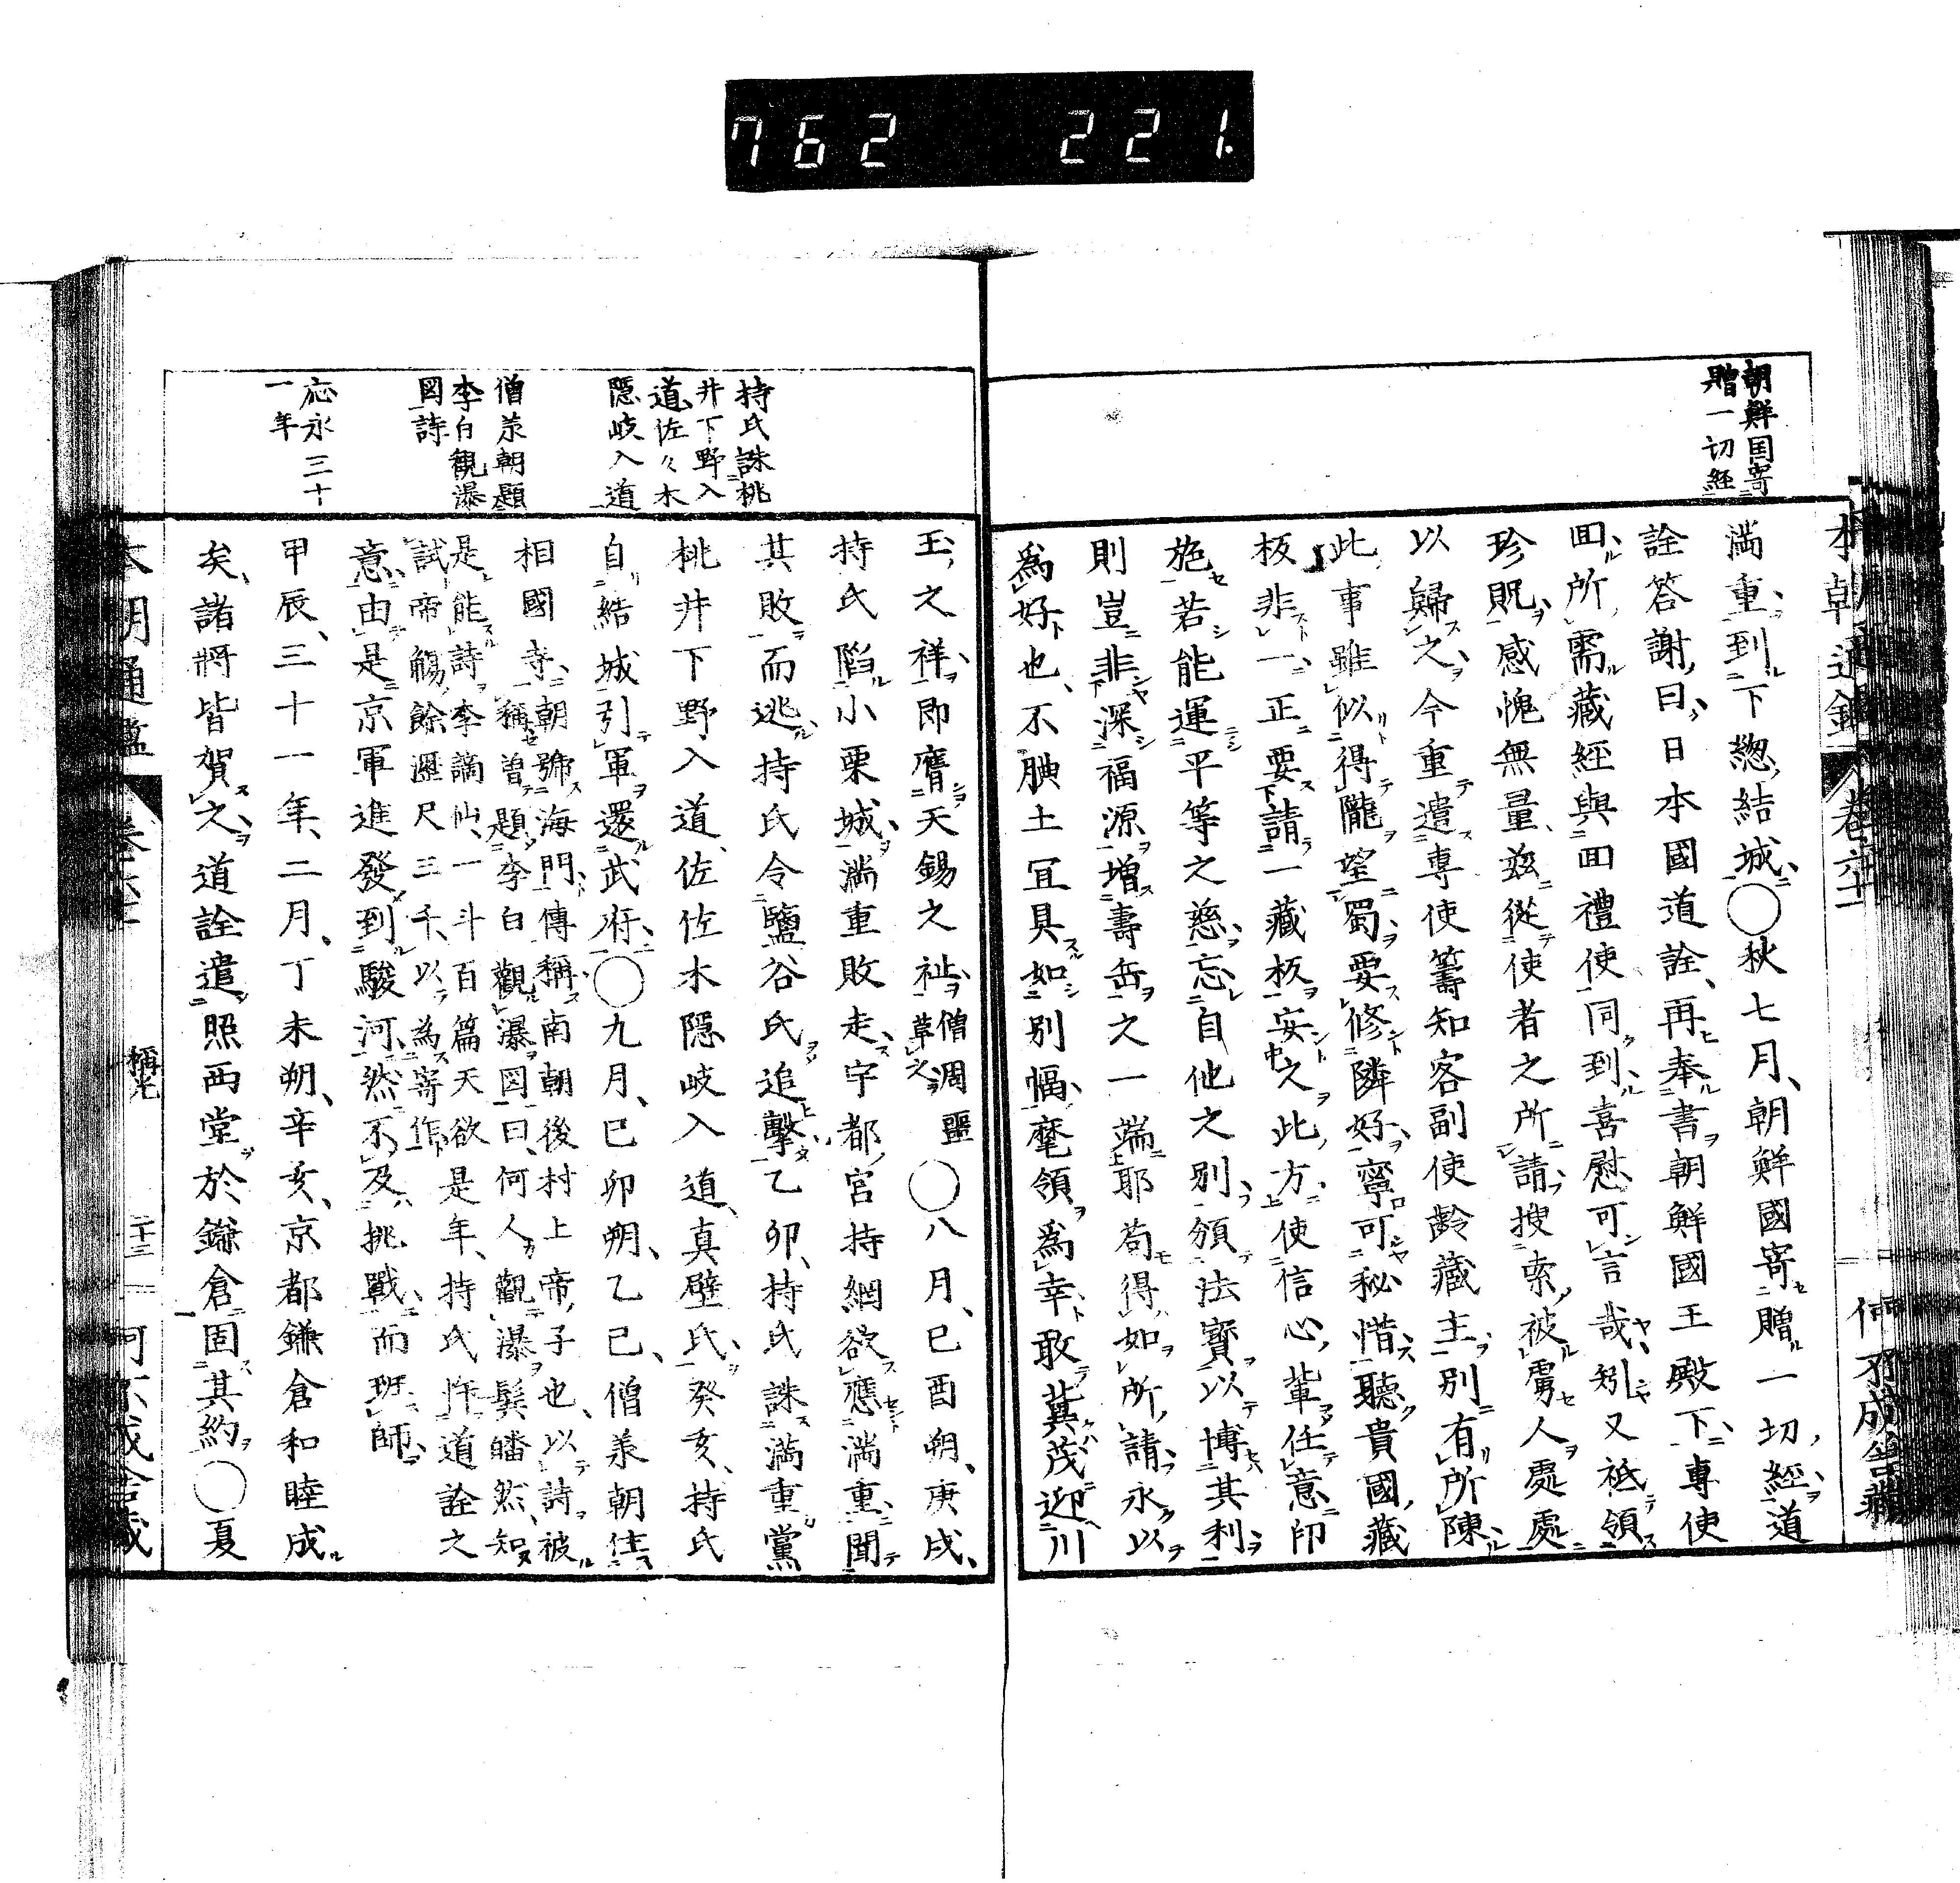 762 221.
朝鮮国寄
贈一切経
滿重到下總結城○秋七月、朝鮮國寄贈一切經道
詮答謝曰、日本國道詮、再奉書朝鮮國王殿下、專使
回所需藏經與回禮使同到、喜慰可言哉矧又祇領
珍貺感愧無量、玆從使者之所請搜索、被虜人處處
以歸之、今重遣專使籌知客副使齡藏主、別有所陳
此事雖似得隴望蜀、要修隣好寧可秘惜、聽貴國藏
板非一、正要請一藏板安之此方使信心輩任意印
施若能運平等之慈、忘自他之別、頒法寶以博其利
則豈非深福源增壽岳之一端耶苟得如所請永以
爲好也、不腆土冝具如別幅麾領爲幸敢冀茂迎川
至之祥、即膺天錫之祉、僧周噩
草之○八月、己酉朔、庚戌、
持氏陷小栗城、滿重敗走、宇都宮持綱欲應滿重聞
其敗而逃、持氏令鹽谷氏追擊、乙卯、持氏誅滿重黨
桃井下野入道、佐佐木隱岐入道、真壁氏、癸亥、持氏
自結城引軍還武府、○九月、己卯朔、乙巳、僧羕朝住
相國寺、朝號海門、傳稱南朝後村上帝子也、以詩被
稱曾題李白觀瀑図曰、何人觀瀑鬂皤然、知
是能詩李謫仙、一斗百篇天欲
試、帝觴餘瀝尺三千、以為寄作、是年、持氏忤道詮之
意由是京軍進發到駿河、然不及挑戰、而班師
甲辰、三十一年、二月、丁未朔、辛亥、京都鎌倉和睦成
矣、諸將皆賀之、道詮遣照西堂於鎌倉固其約○夏
持氏誅桃
井下野入
道佐々木
隠岐入道
僧羕朝題
李白觀瀑
図詩
応永三十
一年
稱光
二十三